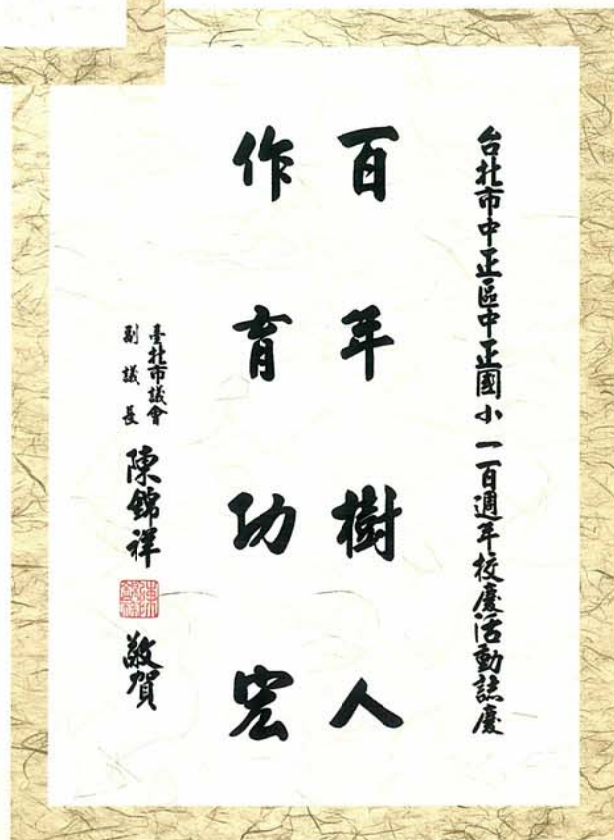 台北市中正區中正國小一百週年校慶活動誌慶
百年樹人
作育功宏
臺北市議會
副議長
陳錦祥
敬賀